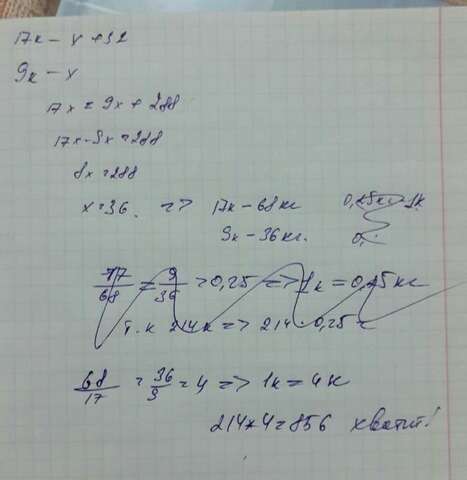 17к - х + 32
9к - х
17х = 9х + 288
17х - 9х = 288
8х = 288
х = 36. => 17к - 68кг 0,25кг = 1к
9к - 36кг. 0,
17/68 = 9/36 = 0,25 => 1к = 0,25кг
т.к 214к => 214 · 0,25 =
68/17 = 36/9 = 4 => 1к = 4к
214*4=856 хватит!